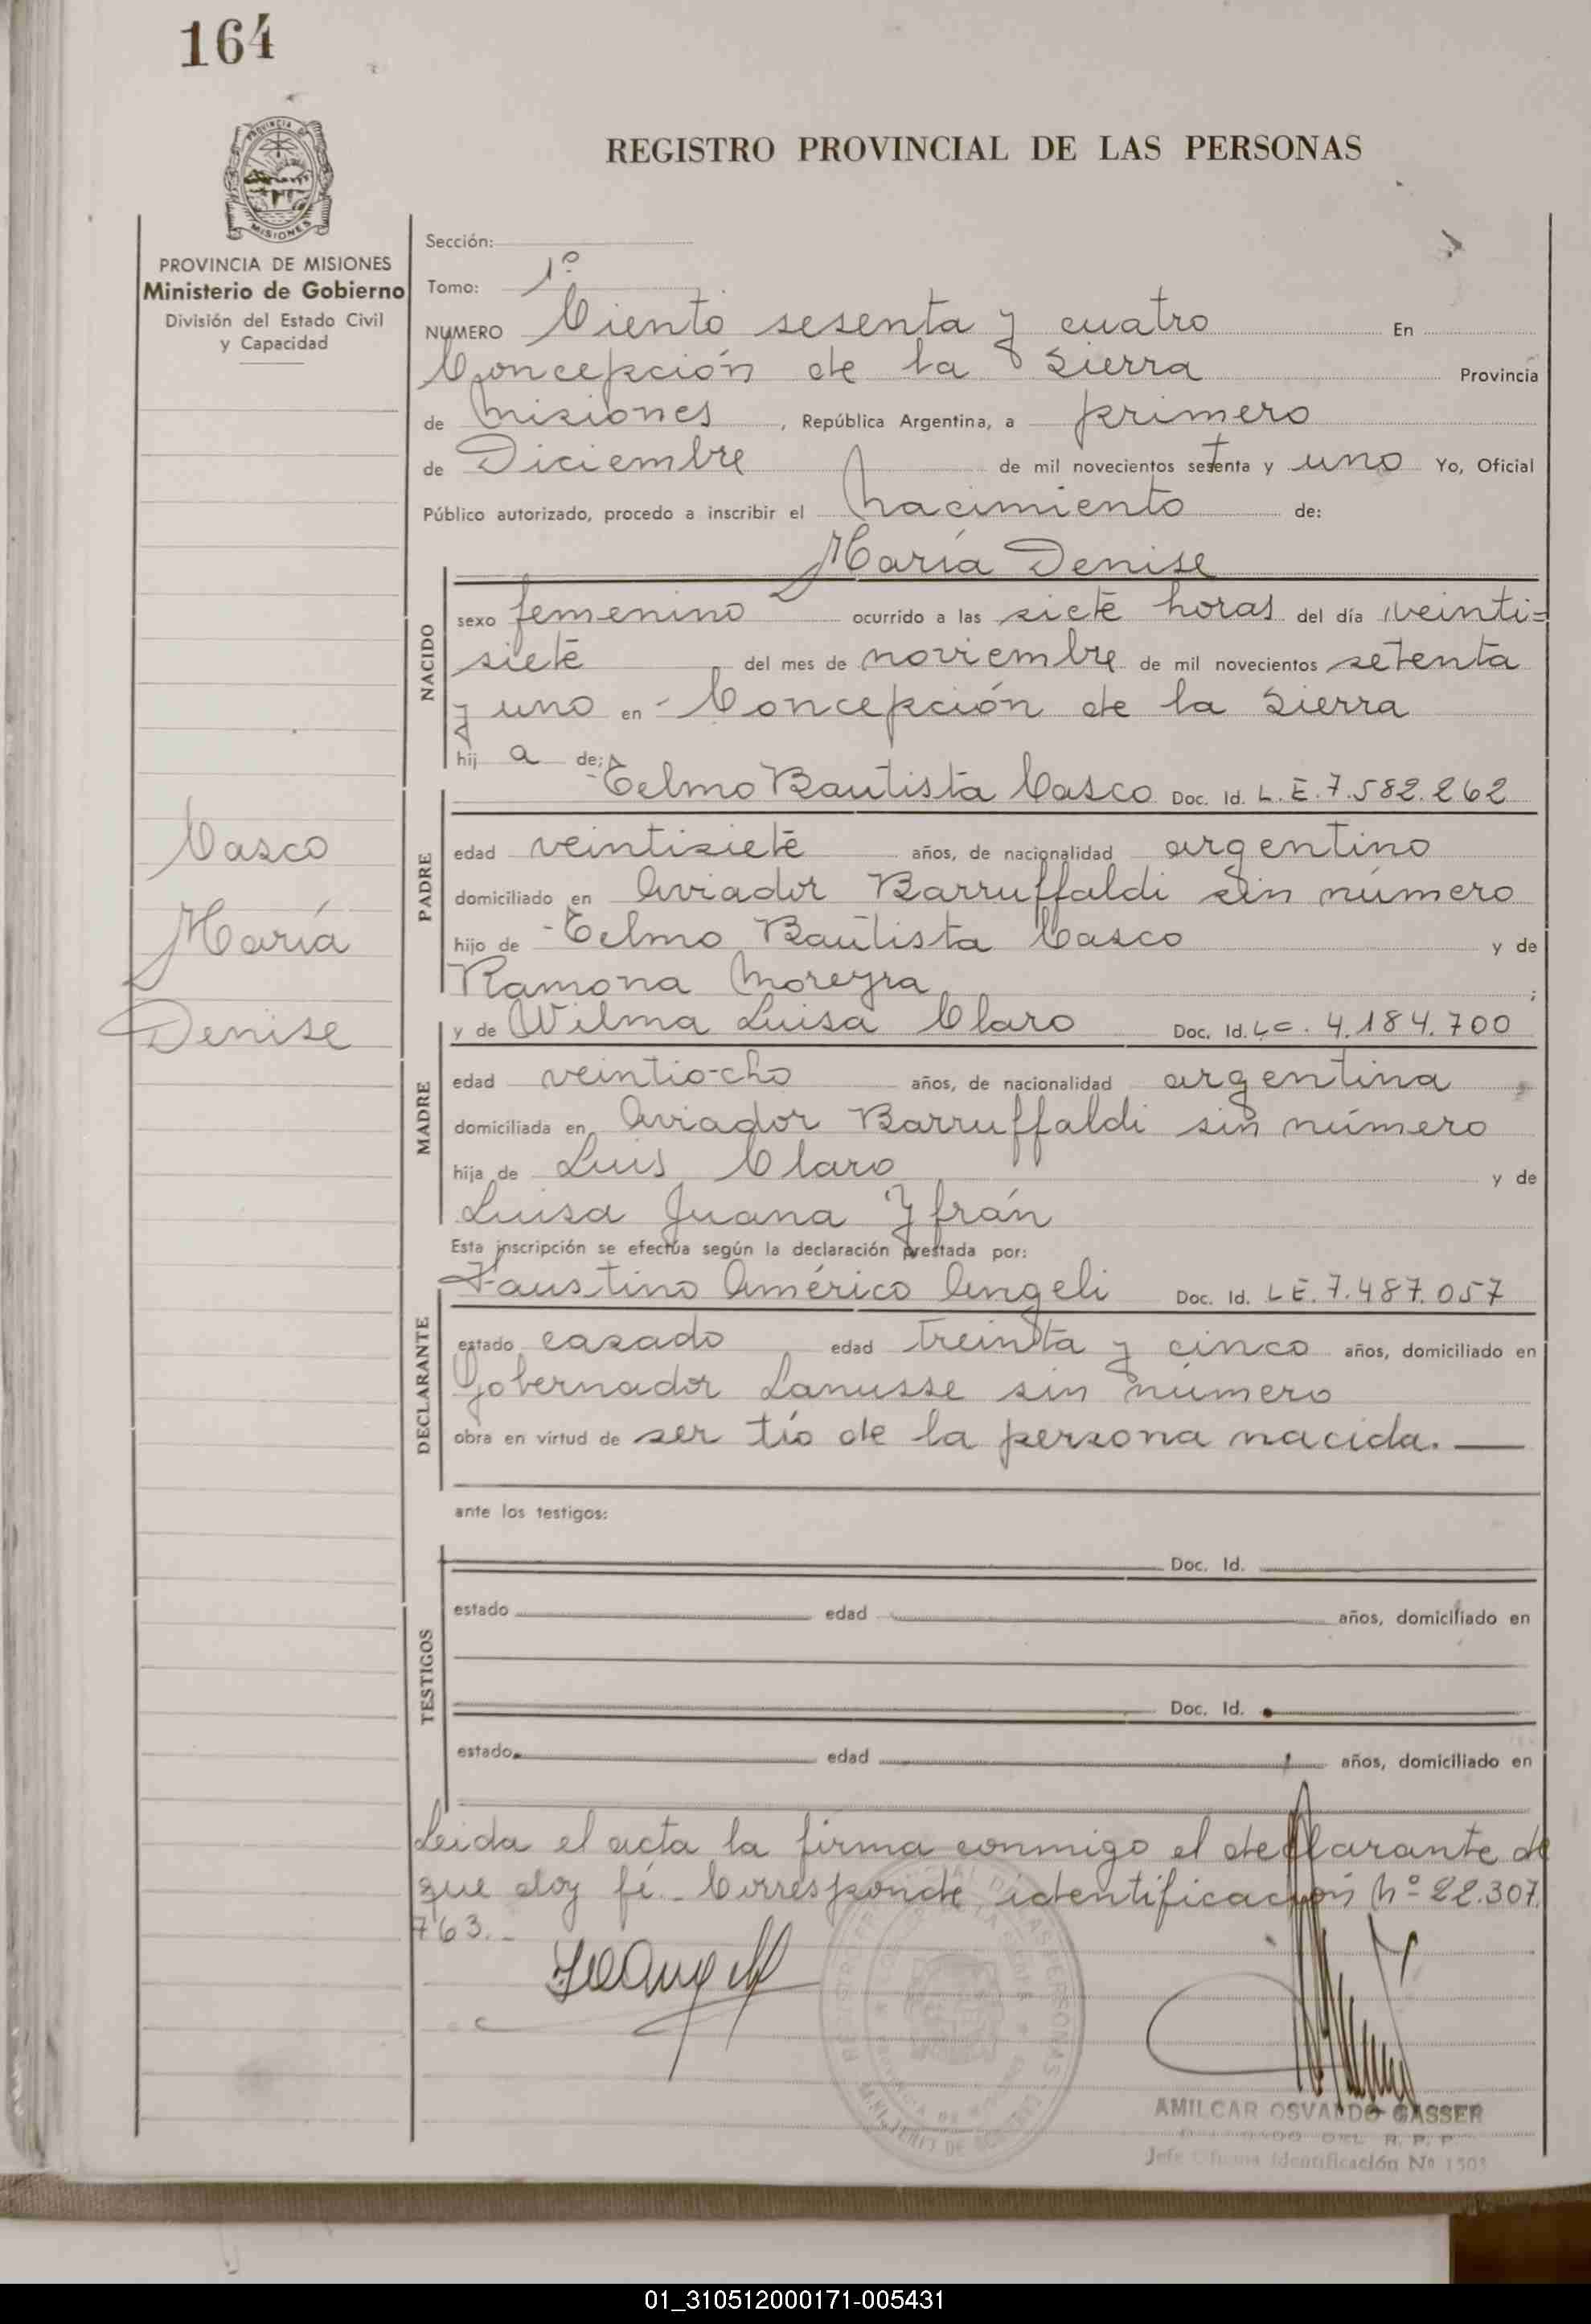 164
PROVINCIA DE
MISIONES
PROVINCIA DE MISIONES
Ministerio de Gobierno
División del Estado Civil
y Capacidad
Casco
María
Denise
REGISTRO PROVINCIAL DE LAS PERSONAS
Sección:
Tomo: 1º
NUMERO Ciento sesenta y cuatro En
Concepción de la Sierra Provincia
de Misiones, República Argentina, a primero
de Diciembre de mil novecientos setenta y uno Yo, Oficial
Público autorizado, procedo a inscribir el Nacimiento de:
María Denise
NACIDO
sexo femenino ocurrido a las siete horas del día veinti=
siete del mes de noviembre de mil novecientos setenta
y uno en Concepción de la Sierra
hij a de:
Telmo Bautista Casco Doc. Id. L.E. 7.582.262
PADRE
edad veintisiete años, de nacionalidad argentino
domiciliado en Aviador Barruffaldi sin número
hijo de Telmo Bautista Casco y de
Ramona Moreyra ;
y de Wilma Luisa Claro Doc. Id. LC. 4.184.700
MADRE
edad veintiocho años, de nacionalidad argentina
domiciliada en Aviador Barruffaldi sin número
hija de Luis Claro y de
Luisa Juana Yfrán
Esta inscripción se efectúa según la declaración prestada por:
Faustino Américo Angeli Doc. Id. LE. 7.487.057
DECLARANTE
estado casado edad treinta y cinco años, domiciliado en
Gobernador Lanusse sin número
obra en virtud de ser tío de la persona nacida.
ante los testigos:
TESTIGOS
Doc. Id.
estado edad años, domiciliado en
Doc. Id.
estado edad años, domiciliado en
Leida el acta la firma conmigo el declarante de
que doy fé. Corresponde identificación Nº 22.307.
763.-
AMILCAR OSVALDO GASSER
DEL R. P. P
Jefe Oficina Identificación Nº 1503
01_310512000171-005431